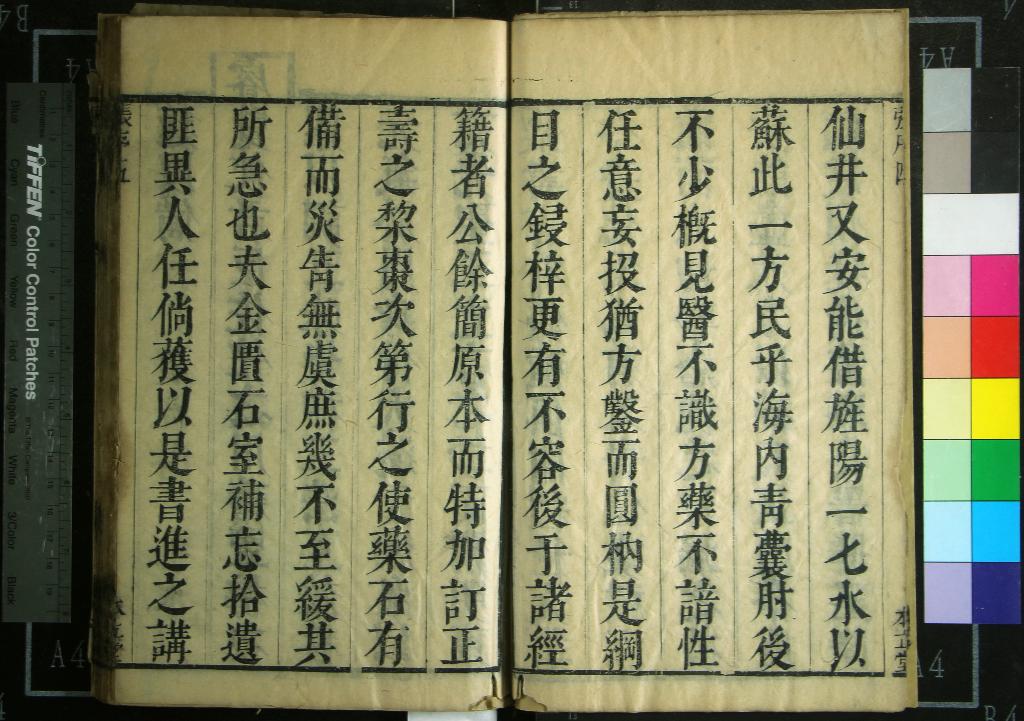 仙井又安能借旌陽一七水以
蘇此一方民乎海內靑囊肘後
不少槪見醫不識方藥不諳性
任意妄投猶方鑿而圓枘是綱
目之鋟梓更有不容後于諸經
籍者公餘簡原本而特加訂正
壽之黎棗次第行之使藥石有
備而災眚無虞庶幾不至緩其
所急也夫金匱石室補忘拾遺
匪異人任倘蒦以是書進之講
TIFFEN Color Control Patches
Blue
Cyan
Green
Yellow
Red
Magenta
White
3/Color
Black
A4
A4
A4
A4